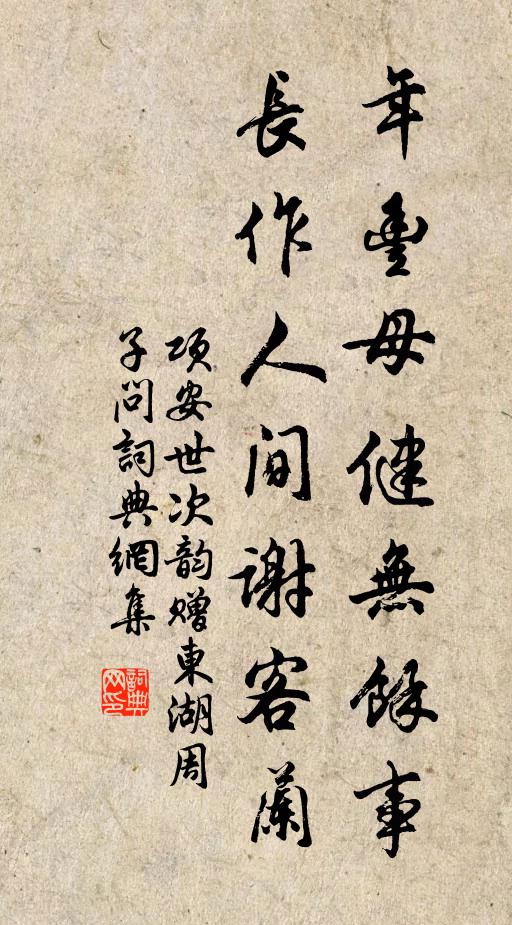 年豐母健無餘事
長作人間謝客蘭
項安世次韵贈東湖周
子問詞典網集
詞典網印